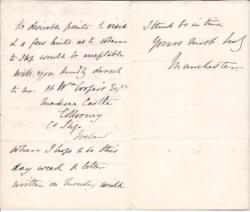 be desirable points to visit
& a few hints as to where
to stop would be acceptable
Will you kindly direct
to me at Wm Coopers Esqre
Markree Castle
Collooney
Co Sligo
Ireland
where I hope to be this
day week. a letter
written on Sunday would
I think be in time
Yours most truly
Manchester